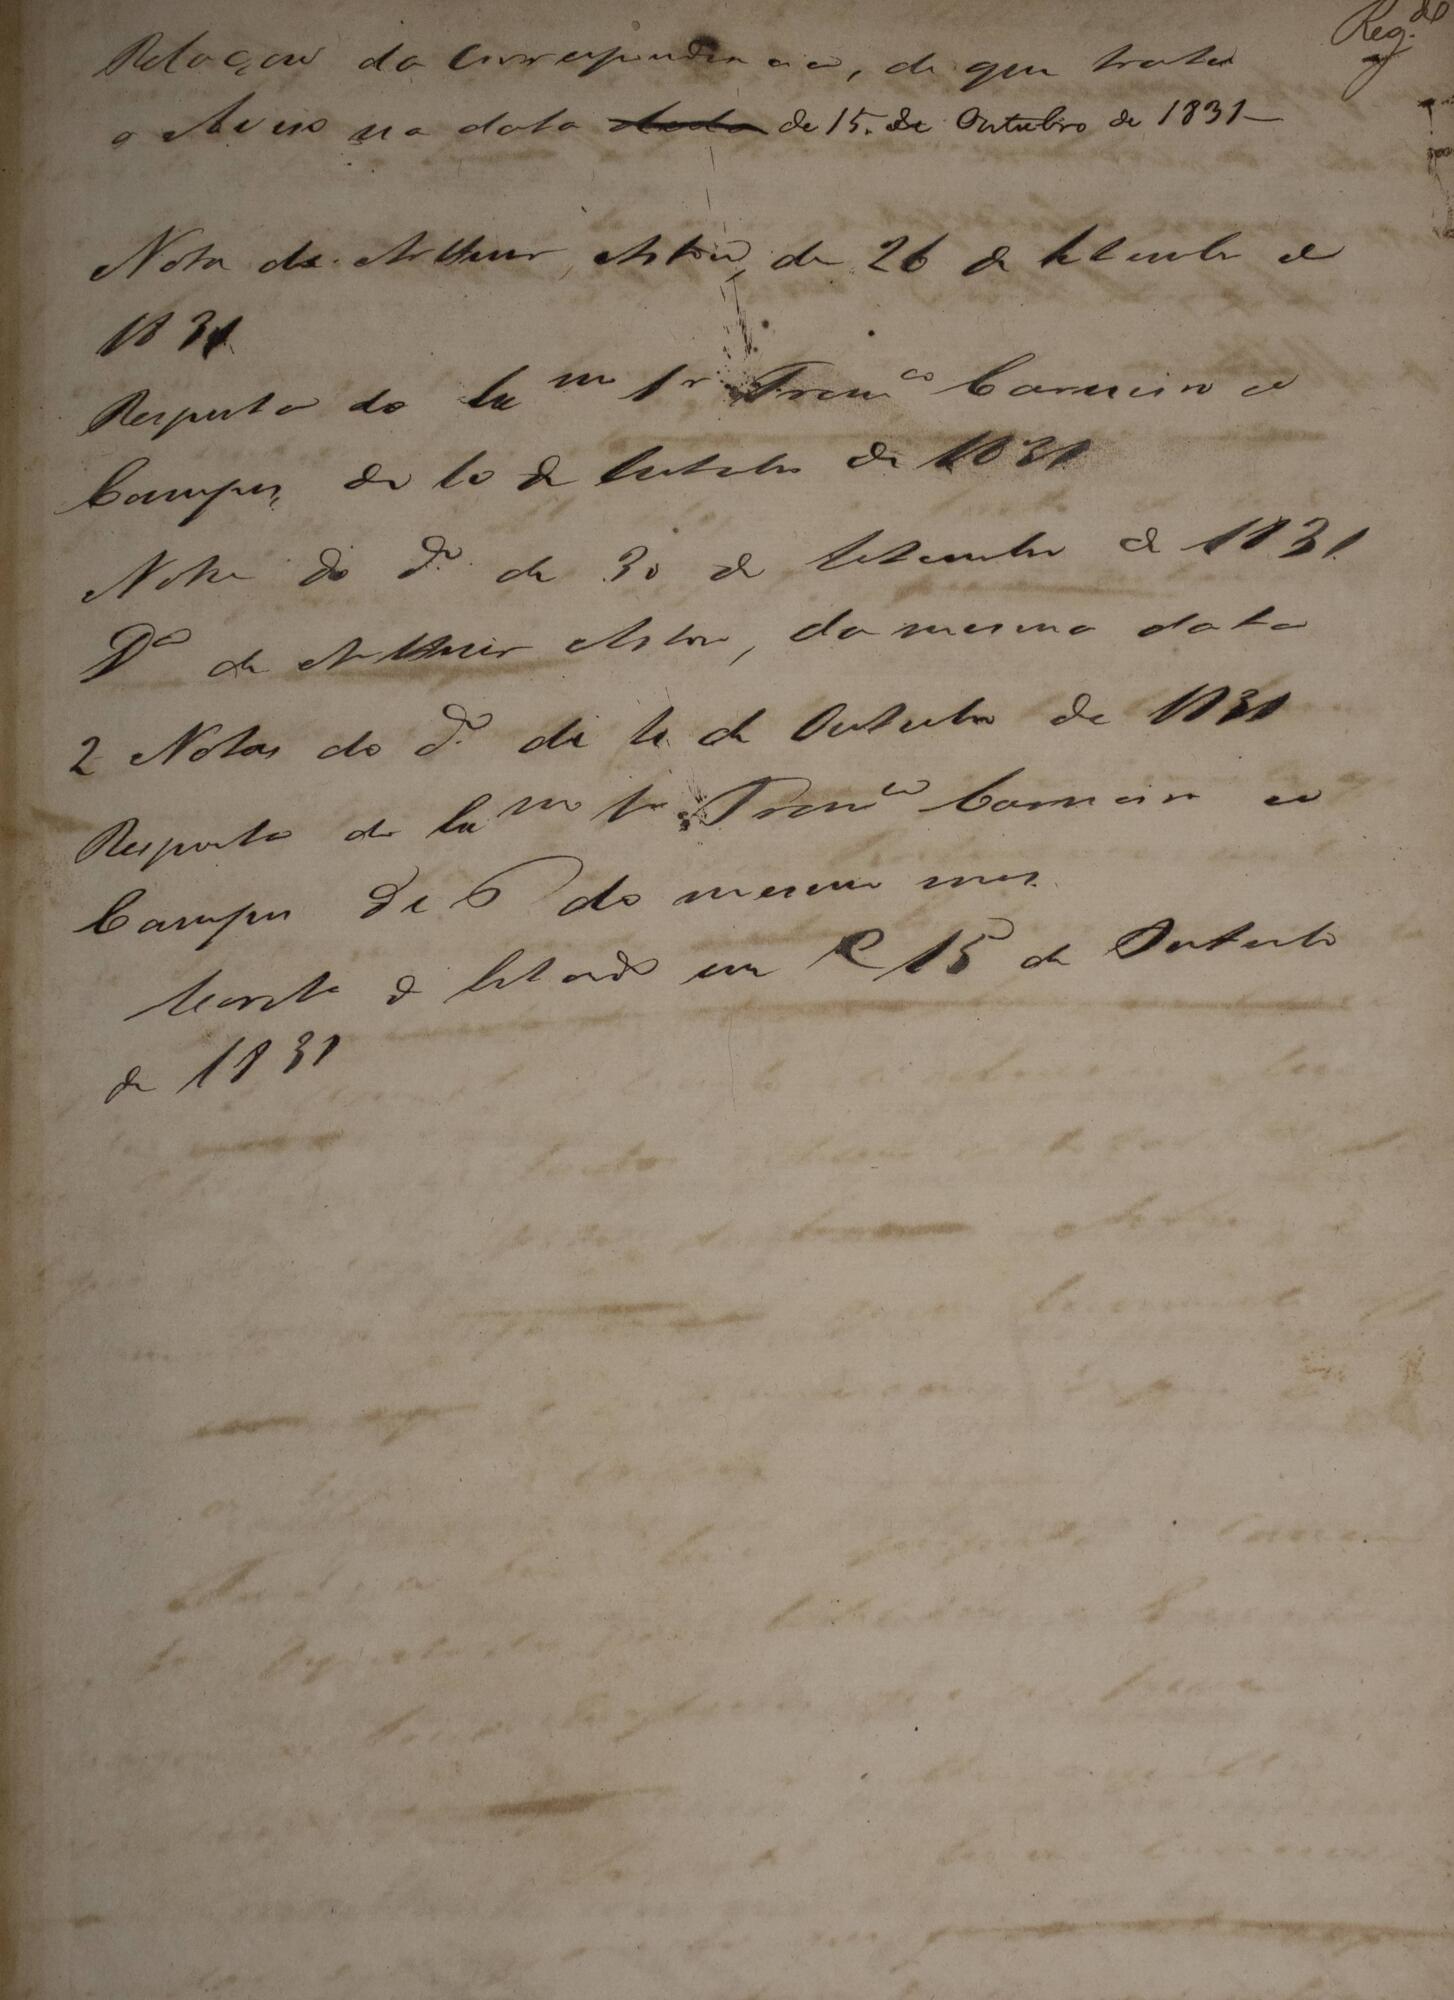 Reg.do
Relaçaõ da Correspondencia, de que trata
o Aviso na data de 15. de Outubro de 1831—
Nota de Arthur Aston, de 26 de Setembro de
1831
Resposta do Exmo Sr Franco Carneiro de
Campos, de 10 de Outubro de 1831
Nota do do de 30 de Setembro de 1831
Do de Arthur Aston, da mesma data
2 Notas do do de de Outubro de 1831
Resposta do Exmo Sr Franco Carneiro de
Campos de 6 do mesmo mes.
Secreta de Estado em 15 de Outubro
de 1831